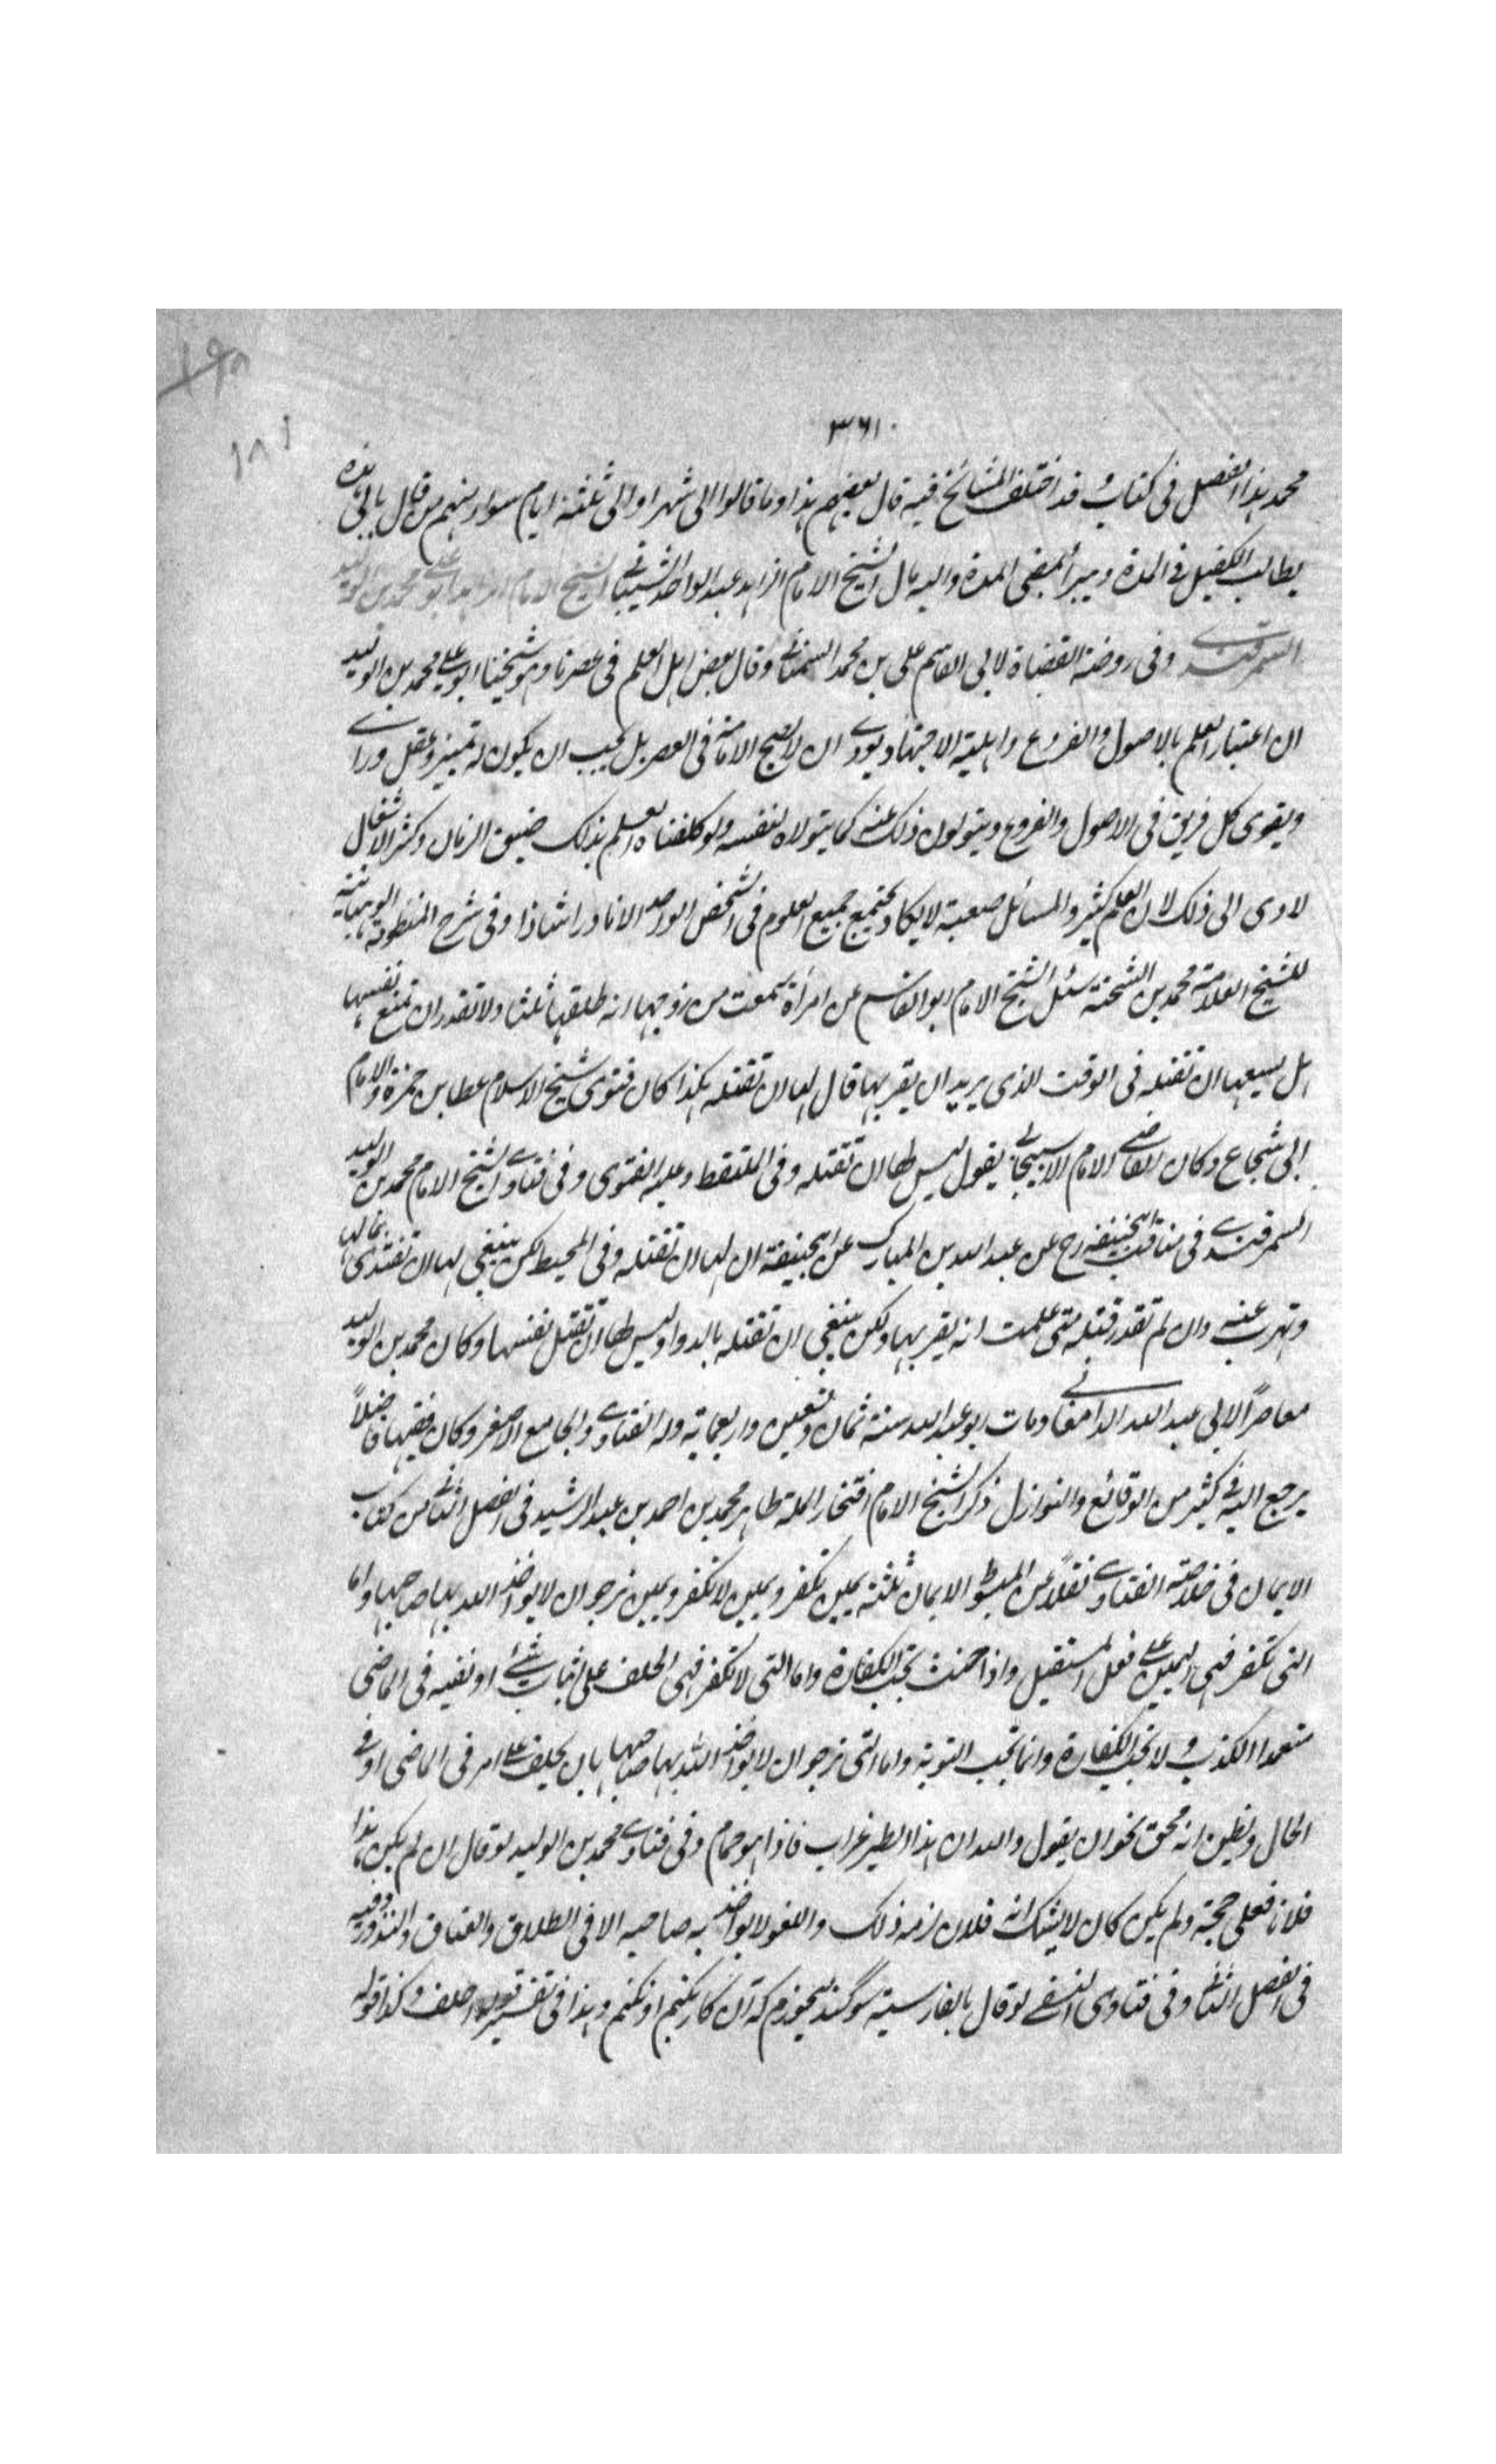 ١٩٨
١٨١
٣٦١٠
محمد هذا الفصل فى كتابه و قد اختلف المشائخ فيه قال بعضهم هذا وما قالوا الى شهر او الى ثلثة ايام سواء ومنهم من قال بان فى هذه
يطالب الكفيل فى المدة ويبرأ بمضى المدة واليه مال الشيخ الامام الزاهد عبد الواحد الشيبانى الشيخ الامام الزاهد ابو على محمد بن الوليد
السمرقندى وفى روضة القضاة لابى القاسم على بن محمد السمنانى وقال بعض اهل العلم فى عصرنا وهو شيخنا ابو على محمد بن الوليد
ان اعتبار العلم بالاصول والفروع واهلية الاجتهاد يودى ان لا يصح الامامة فى العصر بل يجب ان يكون له تميز وعقل وراى
ويقوى كل فريق فى الاصول والفروع ويتولون ذلك عنه كما يتولاه لنفسه ولو كلفناه العلم بذلك ضيق الزمان وكثر الاشغال
لادى الى ذلك لان العلم كثير والمسائل صعبة لا يكاد يجتمع جميع العلوم فى الشخص الواحد الا نادرا شاذا وفى شرح المنظومة الوهبانية
للشيخ العلامة محمد بن الشحنة سئل الشيخ الامام ابو القاسم عن امرأة سمعت من زوجها انه طلقها ثلثا ولا تقدر ان تمنع نفسها
هل يسعها ان تقتله فى الوقت الذى يريد ان يقربها قال لها ان تقتله هكذا كان فتوى شيخ الاسلام عطا بن حمزة والامام
ابى شجاع وكان القاضى الامام الاسبيجابى يقول ليس لها ان تقتله وفى الملتقط وعليه الفتوى وفى فتاوى الشيخ الامام محمد بن الوليد
السمرقندى فى مناقب ابيحنيفه رح عن عبد الله بن المبارك عن ابيحنيفة ان لها ان تقتله وفى المحيط لكن ينبغى لها ان تفتدى بمالها
وتهرب عنه وان لم تقدر قتلته متى علمت انه يقربها ولكن ينبغى ان تقتله بالدواء وليس لها ان تقتل نفسها وكان محمد بن الوليد
معاصرًا لابى عبد الله الدامغانى ومات ابو عبد الله سنة ثمان وسبعين واربعماية وله الفتاوى والجامع الاصغر وكان فقيها فاضلاً
يرجع اليه فى كثير من الوقائع والنوازل ذكر الشيخ الامام افتخار الملة طاهر محمد بن احمد بن عبد الرشيد فى الفصل الثانى من كتاب
الايمان فى خلاصة الفتاوى نقلاً عن المبسوط الايمان ثلثة يمين تكفر ويمين لا تكفر ويمين نرجو ان لا يواخذ الله بها صاحبها واما
التى تكفر فهى اليمين على فعل المستقبل واذا حنث تجب الكفارة واما التى لا تكفر فهى الحلف على اثبات شئ او نفيه فى الماضى
متعمدا الكذب و لا تجب الكفارة وانما تجب التوبة واما التى نرجو ان لا يواخذ الله بها صاحبها بان يحلف على امر فى الماضى او فى
الحال ويظن انه محق نحو ان يقول والله ان هذا الطير غراب فاذا هو حمام وفى فتاوى محمد بن الوليد لو قال ان لم يكن هذا
فلانا فعلى حجة ولم يكن كان لا يشك انه فلان لزمه ذلك واللغو لا يواخذ به صاحبه الا فى الطلاق والعتاق والنذور وفيه
فى الفصل الثانى وفى فتاوى النسفى لو قال بالفارسية سوگند ميخورم كه آن كار نكنم او نكنم وهذا فى تفسير قوله احلف وكذا قوله